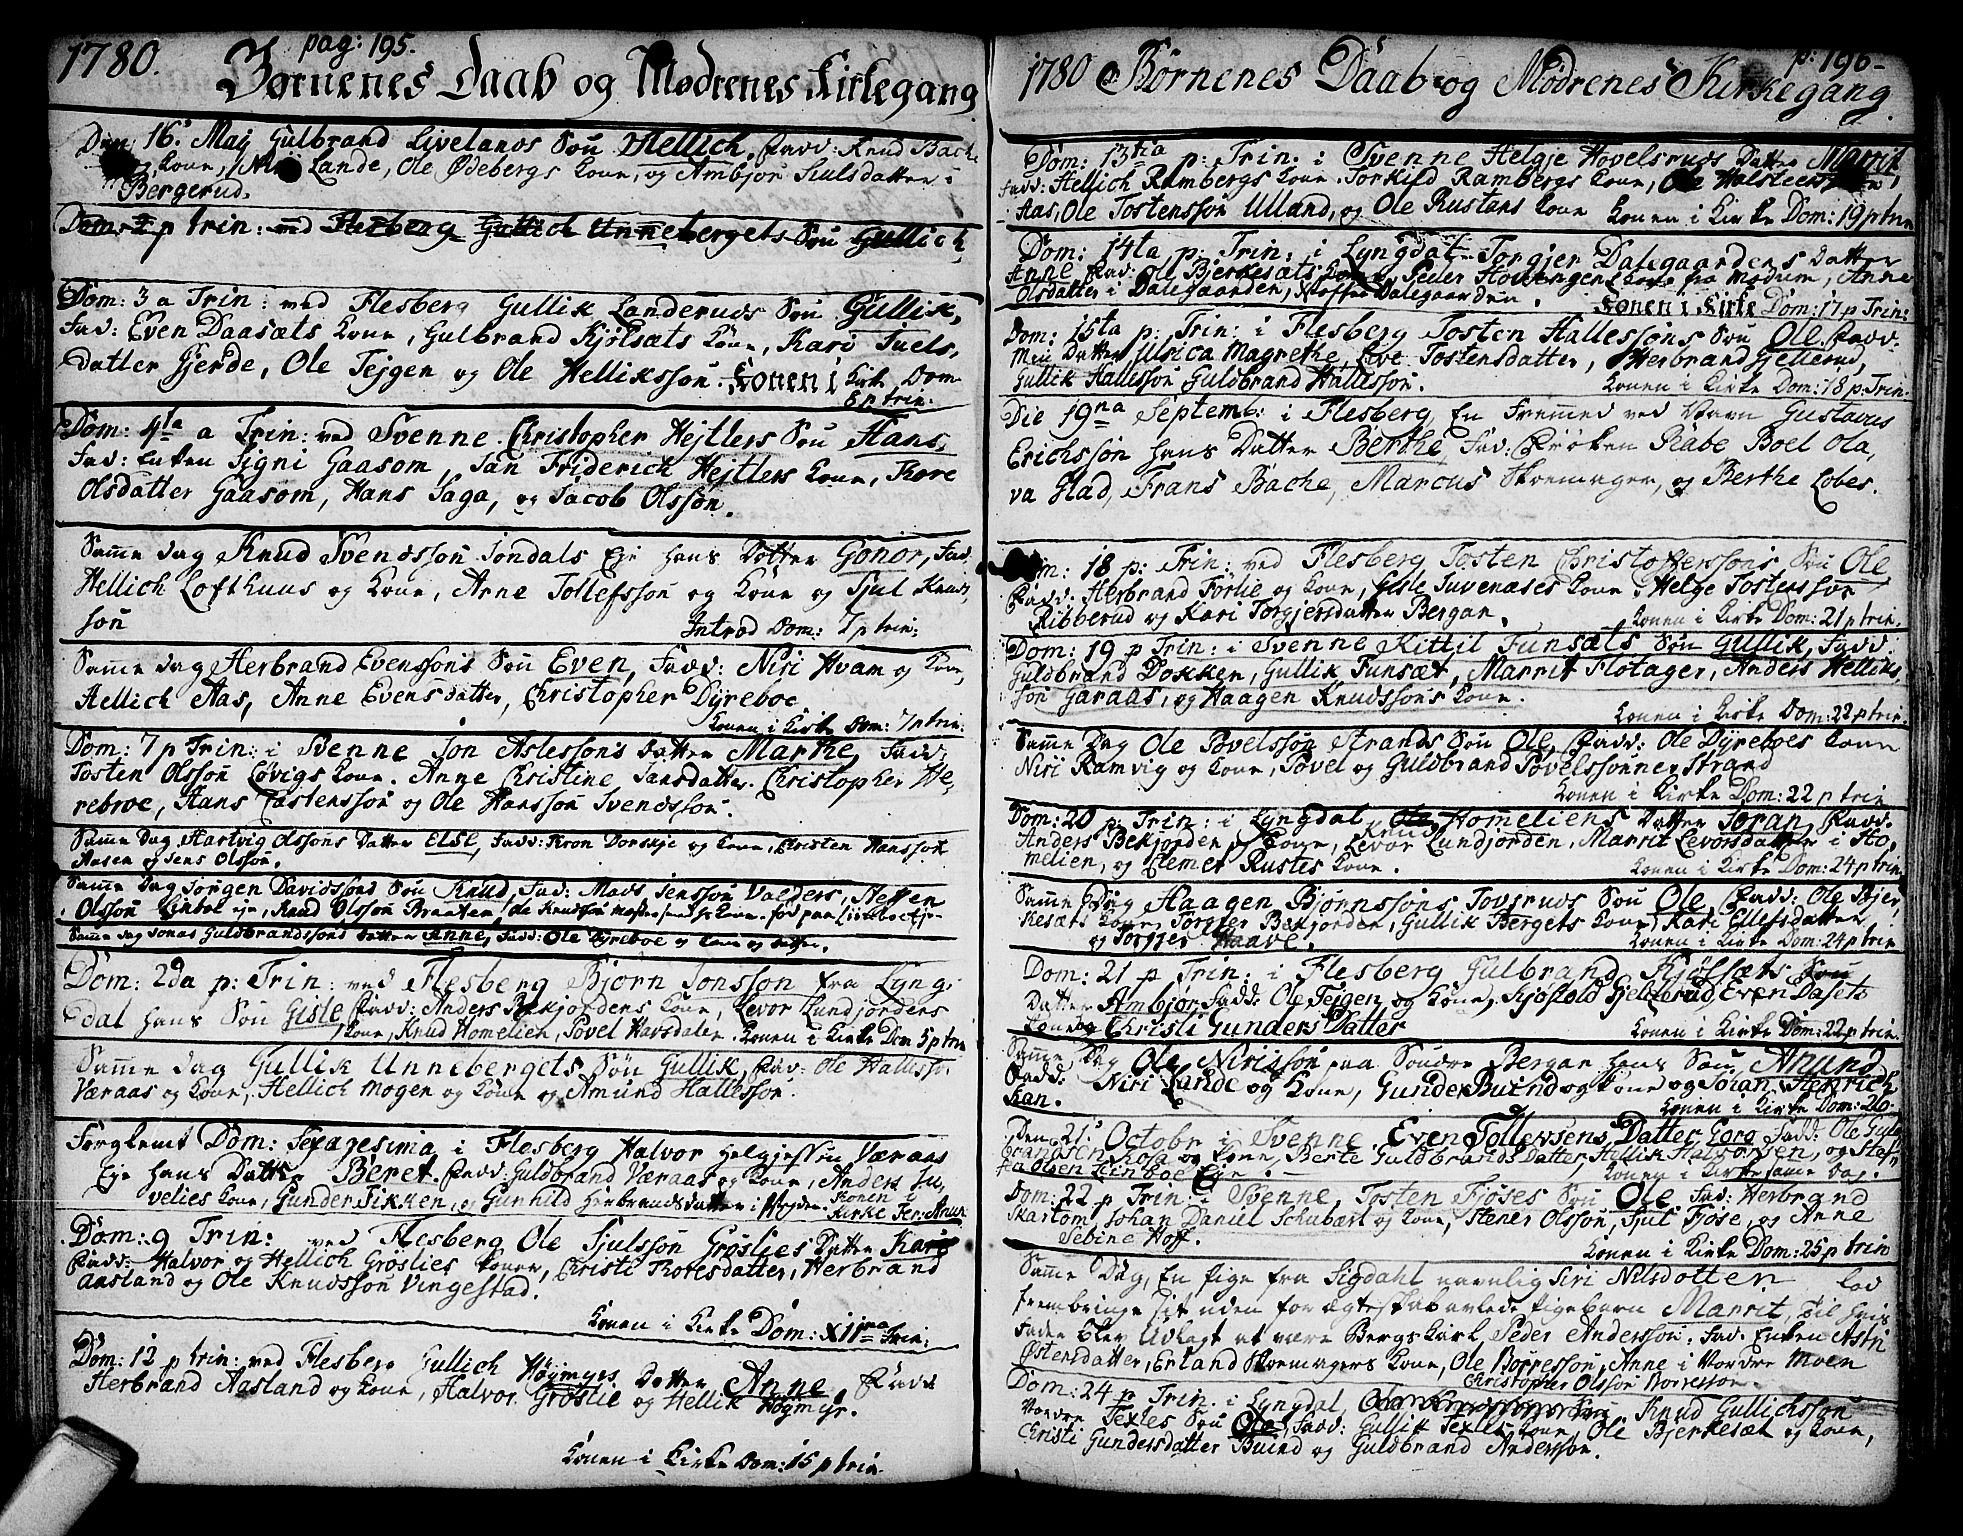 1780. pag: 195.
Børnenes Daab og Mødrenes Kirkegang
Den 16 Maj Gulbrand Livelands Søn Hellich, Fadd: Knud Bache
og Kone, Lande, Ole Ødebergs Kone, og Ambjør Siulsdatter i
Bergerud.
Dom: p trin: ved Flesberg Gullich Unnebergets Søn Gullich,
Dom: 3 a Trin: ved Flesberg Gullik Landeruds Søn Gullik,
Fad: Even Daasæts Kone, Gulbrand Kjølsæts Kone, Kari Juels,
datter Gjerde, Ole Tejgen og Ole Helliksson. Konen i Kirke Dom
p trin.
Dom: 4ta a Trin: ved Svenne Christopher Hejtlers Søn Hans,
Fad: Enken Signi Gaasom, Jan Friderich Hejtlers Kone, Tore
Olsdatter Gaasom, Hans Saga, og Jacob Olsson.
Samme dag Knud Svendsson Jondals Eje hans Dotter Gonor, Fad.
Hellich Lofthuus og Kone, Arne Tollefsson og Kone og Sjul Knuds,
son Introd Dom: 7 p trin:
Samme dag Herbrand Evenssons Søn Even, Fadd: Niri Hvam og Kone,
Hellich Aas, Anne Evensdatter, Christopher Dyreboe
Konen i Kirke Dom: 7 p trin.
Dom: 7 p Trin: i Svenne Jon Aslessons Datter Marthe, Fadd.
Tosten Olsson Løvigs Kone. Anne Christine Jansdatter. Christopher He,
rebroe, Hans Tostensson og Ole Hansson Svendsson.
Samme Dag Hartvig Olssons Datter Else, Fadd: Kron Dorskje og Kone, Christen Hansson
Aasen og Jens Olsson.
Samme Dag Jørgen Davidssons Søn Knud, Fad: Mads Jensson Valders, Steffen
Olsson eje, Knud Olsson Braaten,
Samme dag Jonas Guldbrandssons Datter Anne, Fadd: Ole Dyreboe og Kone og
Dom: 2da p: Trin: ved Flesberg Bjørn Jonsson fra Lyng,
dal hans Søn Gisle Fadd: Anders Bekjordens Kone, Levor Lundjordens
Kone, Knud Homelien, Povel Havsdalen. Konen i Kirke Dom 5 p trin
Samme dag Gullik Unnebergets Søn Gullik, Fad: Ole Hallisso.
Væraas og Kone, Hellich Mogen og Kone og Amund Hallesson.
Forglemt Dom: Sexagesima i Flesberg Halvor Helgjesson Væraas
Eje hans Datter Beret. Fadd: Guldbrand Væraas og Kone, Anders Ju,
velies Kone, Gunder Sikken, og Gunhild Herbrandsdatter i Mogden. Konen i
Kirke
Dom: 9 Trin: ved Flesberg Ole Sjulsson Grøslies Datter Kari
Fadd: Halvor og Hellich Grøslies Koner, Christi Toresdatter, Herbrand
Aasland og Ole Knudsson Vingestad.
Konen i Kirke Dom: 11ma Trin:
Dom: 12 p trin: ved Flesberg Gullich Høgmyrs Datter Anne, Fadd
Herbrand Aasland og Kone, Halvor Grøslie og Hellik Høgmyr.
Konen i Kirke Dom: 15 p trin.
1780 Børnenes Daab og Mødrenes Kirkegang
p: 196
Dom: 13tia p: Trin. i Svenne Helgje Hovelsruds Datter Marrit,
Fadd: Hellich Rambergs Kone. Torkild Rambergs Kone, Ole Halsteensson
Aas, Ole Tostensson Ulland, og Ole Rustans Kone Konen i Kirke Dom: 19 p trin
Dom: 14ta p: Trin: i Lyngdal Torgjer Dalegaardens Datter
Anne Fad: Ole Bjerkesæts Kone, Peder Hovengens Kone fra Modum, Anne
Olsdatter i Dalegaarden, Stoffer Dalegaarden. Konen i Kirke Dom: 17 p Trin:
Dom: 15ta p: Trin: i Flesberg Tosten Hallessøns Søn Ole Fadd.
Min Datter Ulrica Magrethe, Live Tostensdatter, Herbrand Gellerud,
Gullik Hallesson Guldbrand Hallesson. Konen i Kirke Dom: 18 p: Trin.
Die 19na Septemb: i Flesberg En Fremmed ved Navn Gustavus
Erichsson hans Datter Berthe, Fad: Frøken Rabe Boel Ola,
va Glad, Frans Bache, Marcus Skremager, og Berthe Lobes.
Dom: 18 p: Trin: ved Flesberg Tosten Christofferssons Søn Ole
Fadd: Herbrand Førlie og Kone, Gisle Juvenases Kone. Helge Tostensson
Ribberud og Kari Torgjersdatter Bergan. Konen i Kirke Dom: 21 p trin.
Dom: 19 p Trin: i Svenne Kittil Funsæts Søn Gullik, Fadd:
Guldbrand Dokken, Gullik Funsæt, Marrit Flotager, Anders Helliks,
son Garaas, og Haagen Knudssons Kone.
Konen i Kirke Dom: 22 p trin.
Samme Dag Ole Povelsson Strands Søn Ole, Fadd: Ole Dyreboes Kone
Niri Ramvig og Kone, Povel og Guldbrand Povelssønner Strand
Konen i Kirke Dom: 22 p trin
Dom: 20 p: Trin: i Lyngdal Knud Homeliens Datter Joran, Fadd.
Anders Bekjorden og Kone, Levor Lundjorden, Marrit Levorsdatter i Ho,
melien, og Clemer Rustes Kone. Konen i Kirke Dom: 24 p trin.
Samme Dag Haagen Bjørnssons Toveruds Søn Ole, Fadd: Ole Bjer,
kesæts Kone, Torgjer Bekjorden, Gullik Bergets Kone, Kari Ellefsdatter
og Torgjer Haave. Konen i Kirke Dom: 24 p trin
Dom: 21 p Trin: i Flesberg Gulbrand Kjølsæts
Datter Ambjør Fadd: Ole Tejgen og Kone, Kjøstold Gjellerud, Even Dasets
Kone og Christi Gunders Datter Konen i Kirke Dom: 22 p trin.
Samme Dag Ole Nirisson paa Søndre Bergan hans Søn Anund
Fadd: Niri Lande og Kone, Gunder Buind og Kone og Johan Henrich
Kan. Konen i Kirke Dom: 26.
Den 21 Octobr i Svenne Even Tollevsens Datter Goro, Fadd: Ole Gule,
brandsen Rosa og Kone, Berte Guldbrands Datter, Hellik Halvorsen, og Stef,
fa Olsen Eje. Konen i Kirke samme Dag.
Dom: 22 p Trin: i Svenne Tosten Fjøses Søn Ole, Fad: Herbrand
Skartom, Johan Daniel Schubart og Kone, Stener Olsson, Sjul Fjøse, og Anne
Sebine Hoff. Konen i Kirke Dom: 25 p trin
Samme Dag, En Pige fra Sigdahl navnlig Siri Nilsdotten lod
frembringe sit uden for Ægteskab avlede Pigebarn Marrit, til hvis
Fader blev Udlagt at være Bergskarl Peder Andersson. Fad. Enken Astri
Østensdatter, Erland Skremagers Kone, Ole Børresson, Anne i Nordre Moen
Christopher Olsson Børresson.
Dom: 24 p Trin. i Lyngdal, Knud Gullichsson
Nordre Texles Søn Ole, Fadd: Gullik Texles Kone, Ole Bjerkesæt og Kone,
Christi Gundersdatter Buind og Guldbrand Andersson.